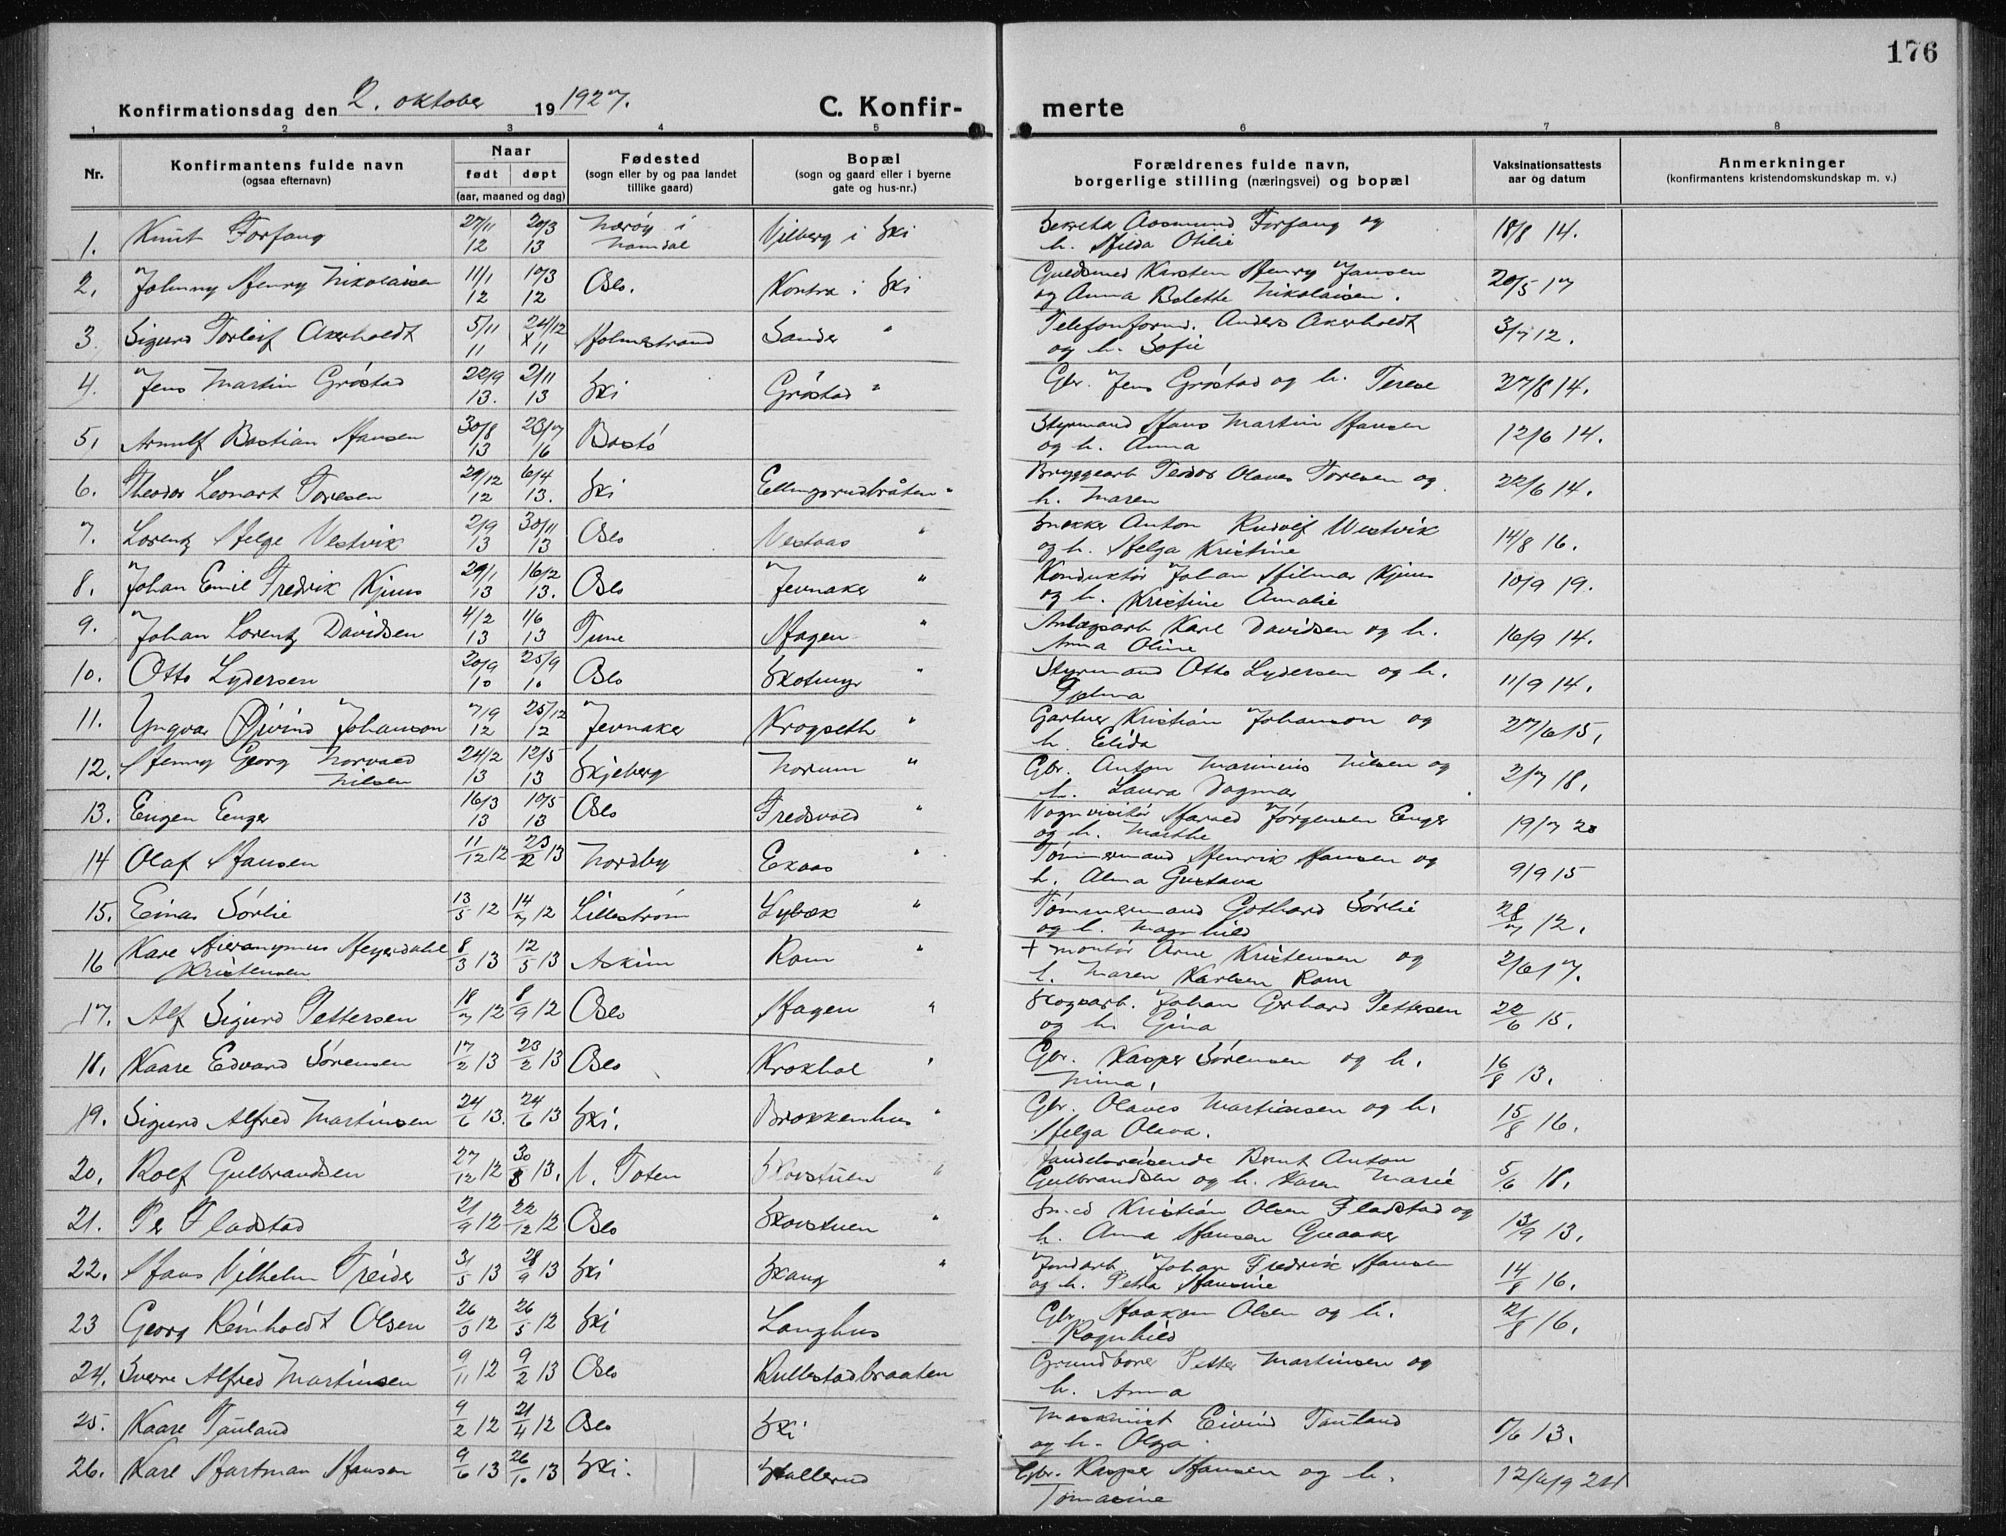 176
Konfirmationsdag den 2. oktober 19 1927. C. Konfir- merte
1 2 3 4 5 6 7 8
Nr. Konfirmantens fulde navn (ogsaa efternavn) Naar født døpt (aar, maaned og dag) Fødested (sogn eller by og paa landet tillike gaard) Bopæl (sogn og gaard eller i byerne gate og hus-nr.) Forældrenes fulde navn, borgerlige stilling (næringsvei) og bopæl Vaksinationsattests aar og datum Anmerkninger (konfirmantens kristendomskundskap m. v.)
1. Knut Forfang 27/11 12 20/3 13 Nærøy i Namdal Vilberg i Ski Sekretær Aasmund Forfang og h. Hilda Otilie 18/8 14.
2. Johnny Henry Nikolaisen 11/1 12 10/3 12 Oslo. Kontra i Ski Guldsmed Karsten Henry Jansen og Anna Bolette Nikolaisen. 20/5 17
3. Sigurd Torleif Akerholdt 5/11 11 24/12 11 Holmestrand Sander " Telefonformd. Anders Akerholdt og h. Sofie 3/7 12.
4. Jens Martin Grøstad 22/9 13. 2/11 13 Ski Grøstad " Gbr. Jens Grøstad og h. Terese 27/8 14.
5. Arnulf Bastian Hansen 30/8 13 23/7 16 Bastø Styrmand Hans Martin Hansen og h. Anna 12/6 14.
6. Theodor Leonart Toresen 29/12 12 6/4 13. Ski Ellingsrudbråten " Bryggearb Teodor Olaves Toresen og h. Maren 22/6 14.
7. Lorentz Helge Vestvik 2/9 13 30/11 13 Oslo Vestaas " Snekker Anton Rudolf Westvik og h. Helga Kristine 14/8 16.
8. Johan Emil Fredrik Kjuus 29/1 13 16/2 13. Oslo Jevnaker " Konduktør Johan Hilmar Kjuus og h. Kristine Amalie 10/9 19.
9. Johan Lorentz Davidsen 4/2 13 1/6 13 Tune Hagen " Anlægsarb Karl Davidsen og h. Anna Oline 16/9 14.
10. Otto Lydersen 20/9 10 25/9 10 Oslo Skotmyr " Styrmand Otto Lydersen og h. 11/9 14.
11. Yngvar Øivind Johanson 7/9 12 25/12 12 Jevnaker Krogseth " Gartner Kristian Johanson og h. Elida 27/6 15.
12. Henry Georg Norvald Nilsen 24/2 13 12/5 13 Skjeberg Norum " Gbr. Anton Marinius Nilsen og h. Laura Dagmar 2/7 18.
13. Eugen Enger 16/3 13 10/5 13 Oslo Fredsvold " Vognvisitør Harald Jørgensen Enger og h. Marthe 19/7 20
14 Olaf Hansen 11/12 12 23/2 13 Nordby Exaas " Tømmermand Henrik Hansen og h. Alma Gustava 9/9 15
15. Einar Sørlie 13/5 12 14/7 12 Lillestrøm Lybæk " Tømmermand Gothard Sørlie og h. Magnhild 28/7 12.
16 Kare Hieronymus Heyerdahl Kristensen 8/3 13 12/5 13 Askim Rom " + montør Arne Kristensen og h. Maren Karlsen Rom 2/6 17.
17. Alf Sigurd Pettersen 18/7 12 8/9 12 Oslo Hagen " Skogsarb. Johan Gerhard Pettersen og h. Gina 22/6 15.
18. Kaare Edvard Sørensen 17/2 13 23/2 13 Oslo Krokhol " Gbr. Kasper Sørensen og h. Mina. 16/8 13.
19. Sigurd Alfred Martinsen 24/6 13. 24/6 13 Ski. Brokkenhus " Gbr. Olaves Martinsen og h. Helga Oleva. 15/8 16.
20. Rolf Gulbrandsen 27/12 12 30/3 13. V. Toten Skoistuen " Handelsreisende Bernt Anton Gulbrandsen og h. Karen Marie 5/6 18.
21. Per Fladstad 21/9 12 22/12 12 Oslo Skoistuen " Smed Kristian Olsen Fladstad og h. Anna Hansen Graaker 13/9 13.
22. Hans Vilhelm Treider 31/5 13 28/9 13 Ski Skaug " Jordarb. Johan Fredrik Hansen og h. Petra Hansine 14/8 16.
23 Georg Reinholdt Olsen 26/3 12 26/5 12 Ski Langhus Gbr. Haakon Olsen og h. Ragnhild 21/8 16.
24. Sverre Alfred Martinsen 9/11 12 9/2 13 Oslo Kullestadbraaten Grundborer Petter Martinsen og h. Anna
25. Kaare Tauland 9/2 12 21/4 12 Oslo Ski Maskinist Eivind Tauland og h. Olga 1/6 13.
26. Karl Hartman Hansen 9/6 13 26/10 13 Ski. Stallerud Gbr. Kasper Hansen og h. Tomasine